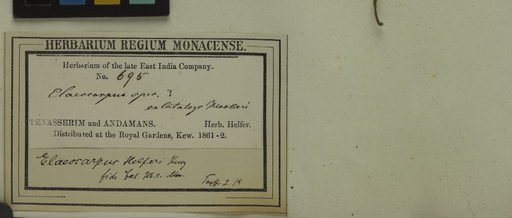 HERBARIUM REGIUM MONACENSE.
Herbarium of the late East India Company.
No. 695
Elaeocarpus spec. ?
e Catalogo
TENASSERIM and ANDAMANS. Herb. Helfer.
Distributed at the Royal Gardens, Kew. 1861-2.
Elaeocarpus Helferi Kurz
fide